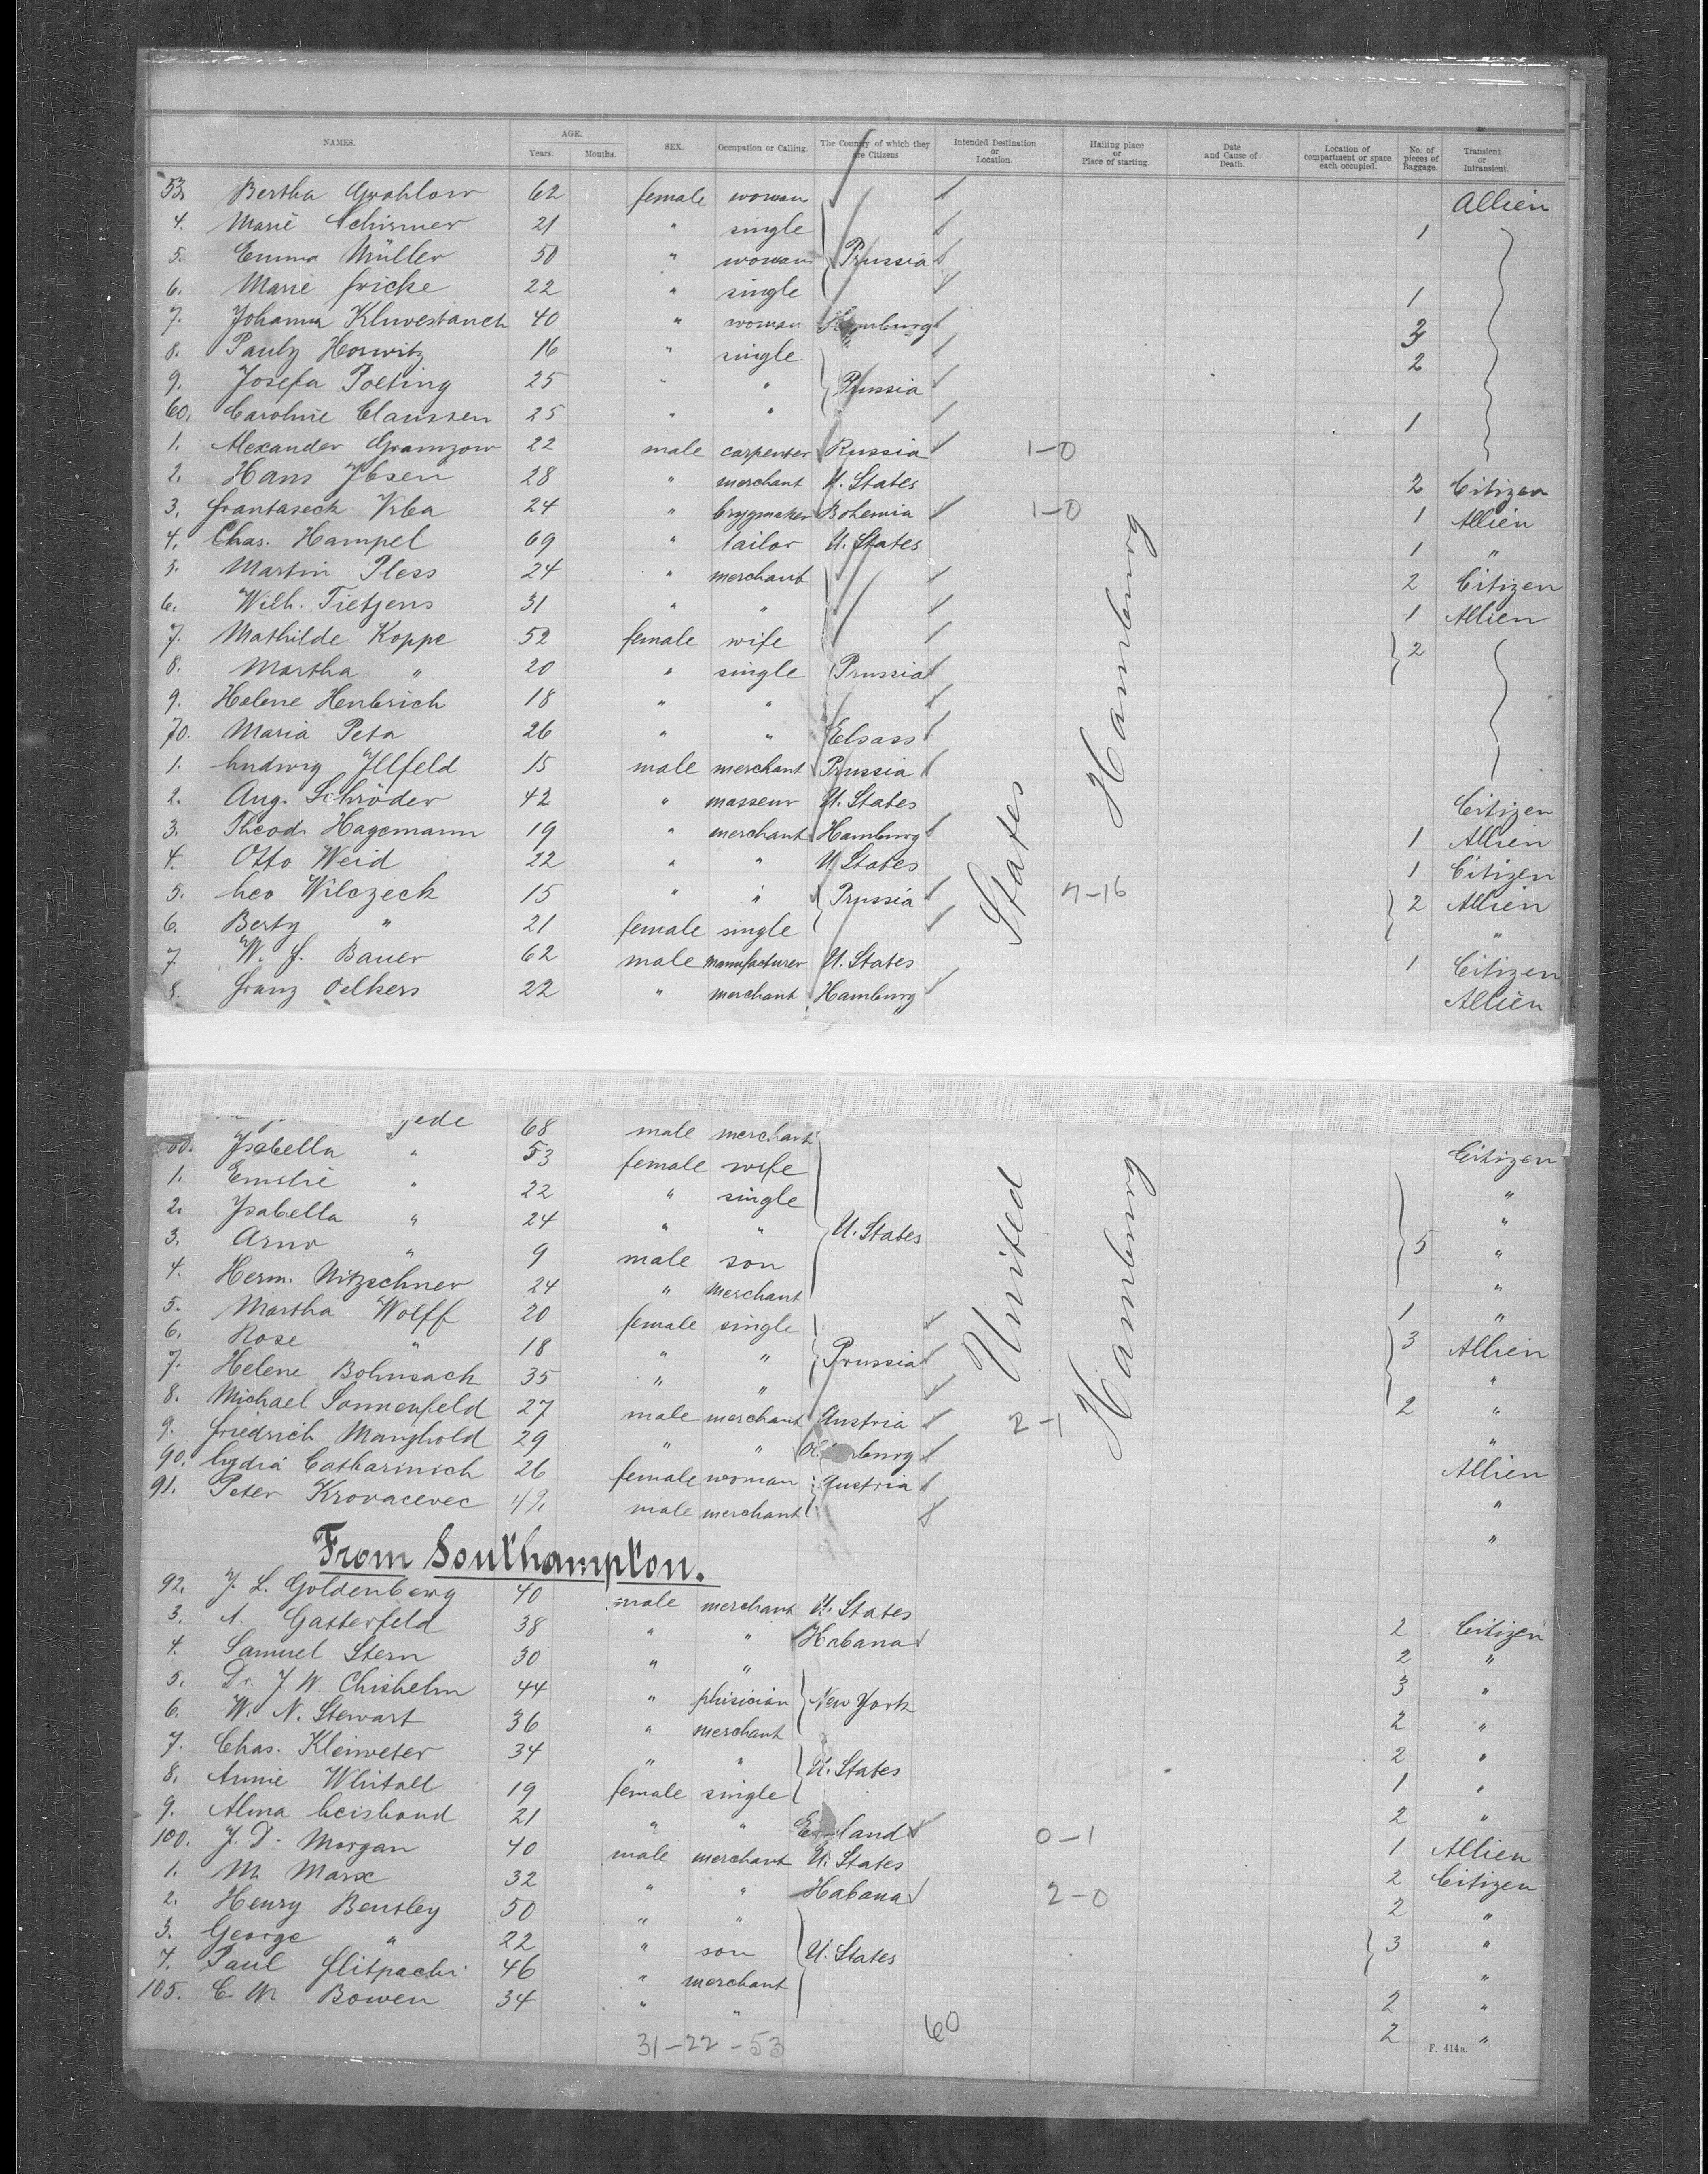 NAMES. AGE. Years. Months. SEX. Occupation or Calling. The Country of which they are Citizens Intended Destination or Location. Hailing place or Place of starting. Date and Cause of Death. Location of compartment or space each occupied. No. of pieces of Baggage. Transient or Intransient.
53. Bertha Grohlow 62 female woman Allien
4. Marie Schirmer 21 " single 1
5. Emma Müller 50 " woman Prussia
6. Marie Fricke 22 " single 1
7. Johanna 40 " woman Hamburg 2
8. Pauly Horwitz 16 " single 2
9. Josefa Poeting 25 " " Prussia
60. Caroline Claussen 25 " " 1
1. Alexander Gramzow 22 male carpenter Russia 1-0
2. Hans Ibsen 28 " merchant U. States 2 Citizen
3. Frantaseck Vrba 24 " Bohemia 1-0 1 Allien
4. Chas. Hampel 69 " tailor U. States 1 "
5. Martin Pless 24 " merchant 2 Citizen
6. Wilh. Tietjens 31 " " 1 Allien
7. Mathilde Koppe 52 female wife 2
8. Martha " 20 " single Prussia
9. Helene Henbrich 18 " "
70. Maria Peta 26 " " Elsass
1. Ludwig Illfeld 15 male merchant Prussia
2. Aug. Schröder 42 " masseur U. States Citizen
3. Theod. Hagemann 19 " merchant Hamburg 1 Allien
4. Otto Weid 22 " " U. States 1 Citizen
5. Leo Wilczeck 15 " " Prussia 7-16 2 Allien
6. Berty " 21 female single "
7 W. F. Bauer 62 male manufacturer U. States 1 Citizen
8. Franz Oelkers 22 " merchant Hamburg Allien
States
Hamburg
68 male merchant
80. Isabella " 53 female wife Citizen
1. Emilie " 22 " single "
2. Isabella " 24 " " U. States "
3. Arno " 9 male son 5 "
4. Herm. Nitzschner 24 " merchant "
5. Martha Wolff 20 female single 1 "
6. Rose " 18 " " Prussia 3 Allien
7. Helene Bohnsack 35 " " "
8. Michael Sonnenfeld 27 male merchant Austria 2-1 2 "
9. Friedrich Manghold 29 " " "
90. Lydia Catharinich 26 female woman Austria Allien
91. Peter Krovacevec 49 male merchant "
United
Hamburg
"
From Southampton.
92. J. L. Goldenberg 40 male merchant U. States
3. A. Gatterfeld 38 " " Habana 2 Citizen
4. Samuel Stern 30 " " 2 "
5. Dr. J. W. Chishelm 44 " phisician New York 3 "
6. W. N. Stewart 36 " merchant 2 "
7. Chas. Kleinveter 34 " " U. States 2 "
8. Annie Whitall 19 female single 1 "
9. Alma Leisband 21 " " England 0-1 2 "
100. J. D. Morgan 40 male merchant U. States 1 Allien
1. M. Marx 32 " " Habana 2-0 2 Citizen
2. Henry Bentley 50 " " 2 "
3. George " 22 " son U. States 3 "
4. Paul 46 " merchant "
105. C. M. Bowen 34 " " 2 "
31-22-53 60 2 "
F. 414a.